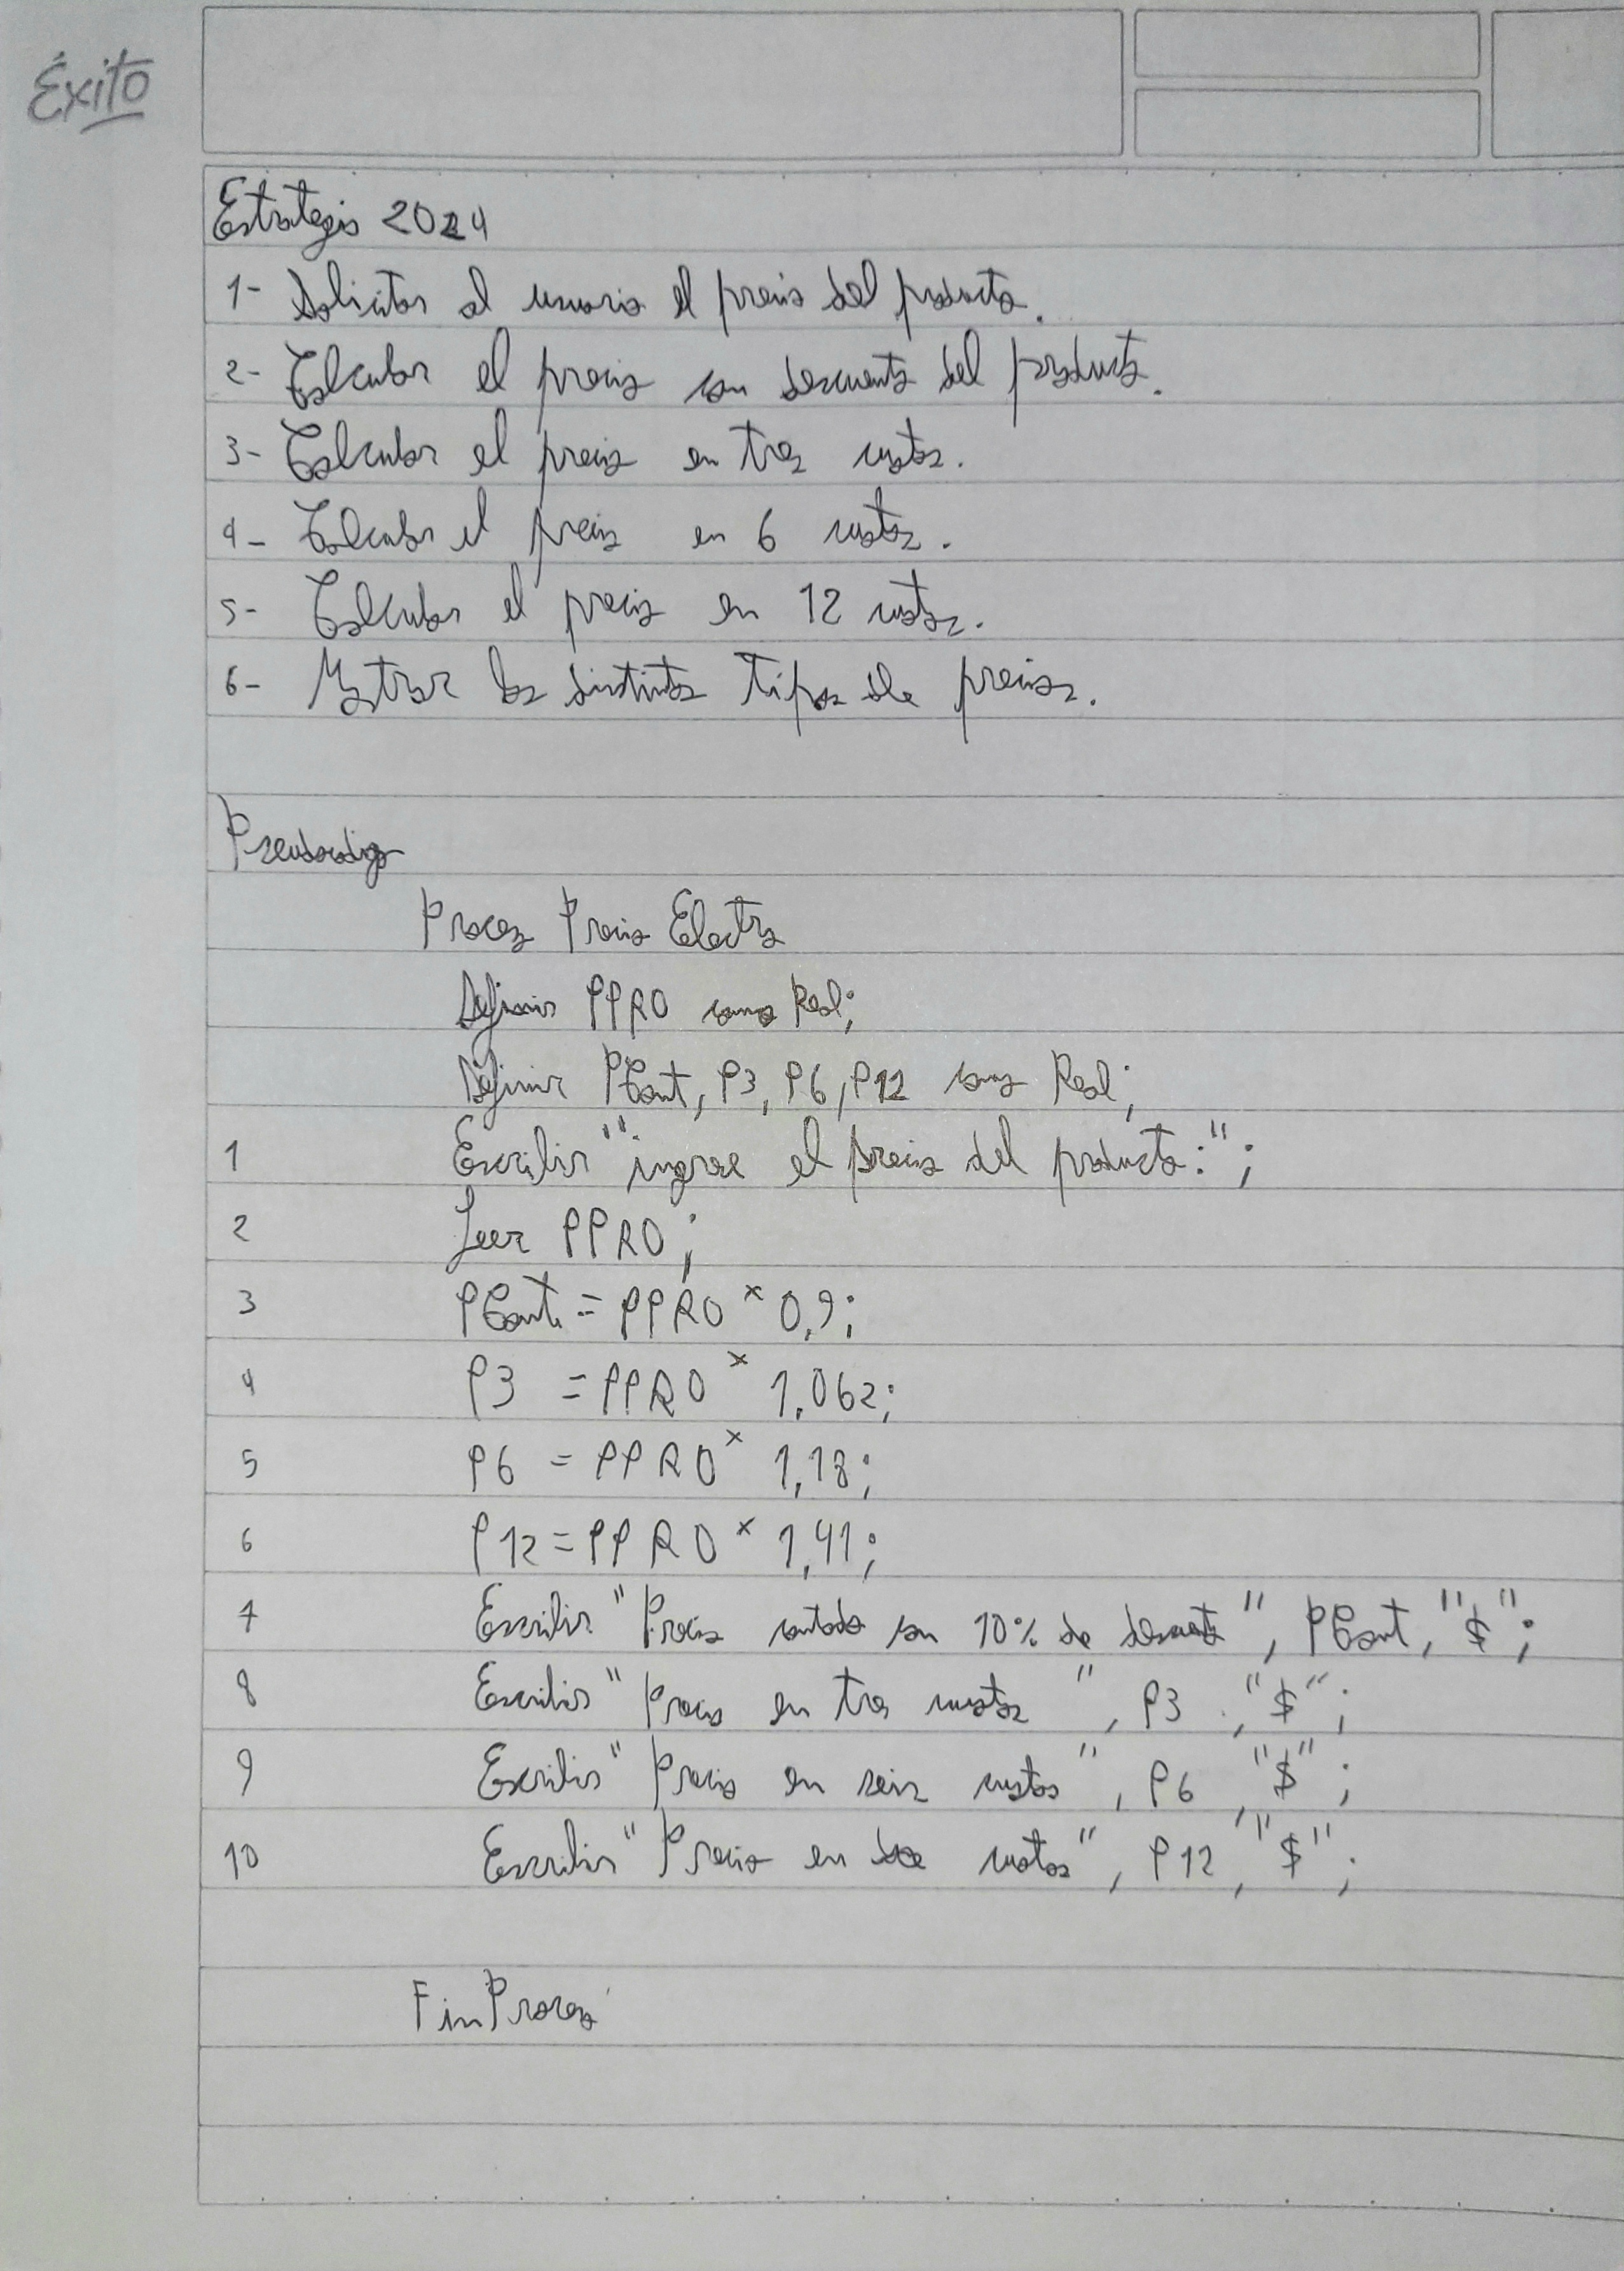 Éxito
Estrategia 2024
1- Solicitar al usuario el precio del producto.
2- Calcular el precio con descuento del producto.
3- Calcular el precio en tres cuotas.
4- Calcular el precio en 6 cuotas.
5- Calcular el precio en 12 cuotas.
6- Mostrar los distintos tipos de precios.
Pseudocodigo
Proceso Precio Electro
Definir PPRO como Real;
Definir PCont, P3, P6, P12 como Real;
1 Escribir "ingrese el precio del producto:";
2 Leer PPRO;
3 PCont = PPRO * 0,9;
4 P3 = PPRO * 1,062;
5 P6 = PPRO * 1,18;
6 P12 = PPRO * 1,41;
7 Escribir "Precio contado con 10% de descuento", PCont, "$";
8 Escribir "Precio en tres cuotas", P3, "$";
9 Escribir "Precio en seis cuotas", P6, "$";
10 Escribir "Precio en doce cuotas", P12, "$";
FinProceso